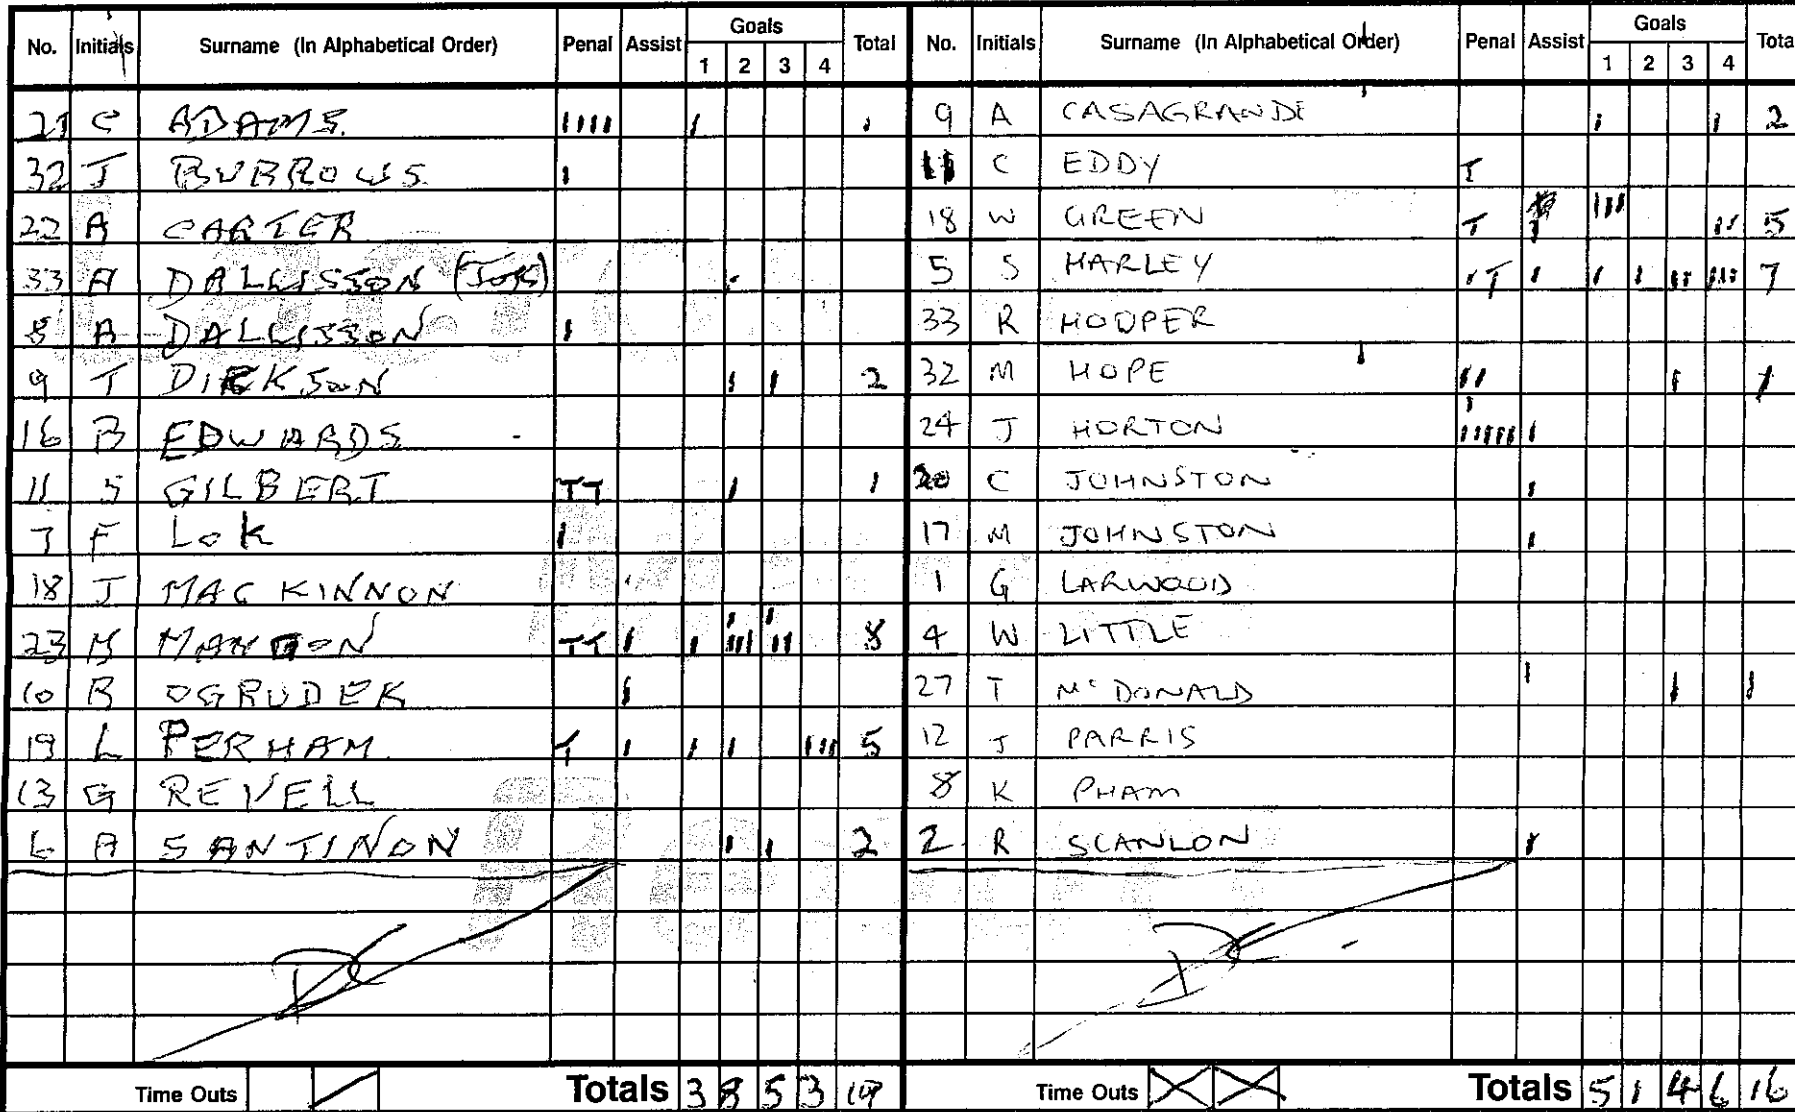 No. Initials Surname (In Alphabetical Order) Penal Assist Goals 1 2 3 4 Total
21 C ADAMS IIII I I
32 J BURROWS I
22 A CARTER
33 A DALLISSON
8 A DALLISSON I
9 T DICKSON I I 2
16 B EDWARDS
11 S GILBERT TT I 1
7 F LOK I
18 J MACKINNON
23 M TT I I IIII III 8
10 B OGRUDEK I
19 L PERHAM T I I I III 5
13 G REVELL
6 A SANTINON I I 2
Time Outs / Totals 3 8 5 3 19
No. Initials Surname (In Alphabetical Order) Penal Assist Goals 1 2 3 4 Total
9 A CASAGRANDE I I 2
11 C EDDY T
18 W GREEN T I III II 5
5 S HARLEY I T I I I II III 7
33 R HOOPER
32 M HOPE II I 1
24 J HORTON IIIIII I
20 C JOHNSTON I
17 M JOHNSTON I
1 G LARWOOD
4 W LITTLE
27 T McDONALD I I 1
12 J PARRIS
8 K PHAM
2 R SCANLON I
Time Outs X X Totals 5 1 4 6 16